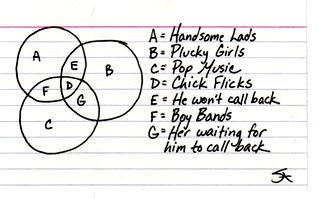 A = Handsome Lads
B = Plucky Girls
C = Pop Music
D = Chick Flicks
E = He won't call back
F = Boy Bands
G = Her waiting for
him to call back
A
E
B
D
F
G
C